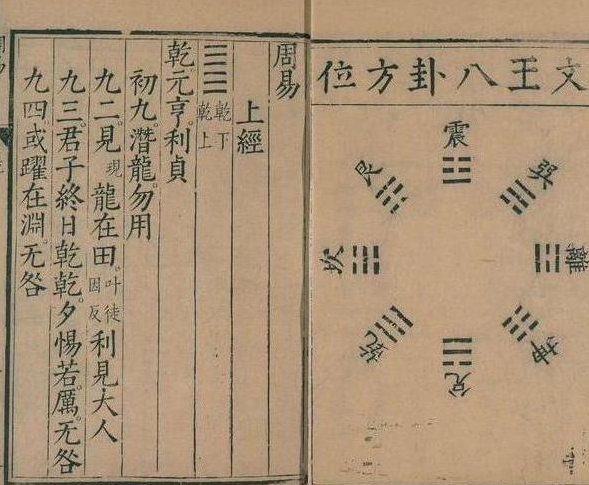 文王八卦方位
震
巽
離
坤
兌
乾
坎
艮
周易
上經
乾下
乾上
乾元亨。利貞
初九。潛龍。勿用
九二。見現龍在田。叶徒因反利見大人
九三。君子終日乾乾。夕惕若。厲。无咎
九四。或躍在淵。无咎